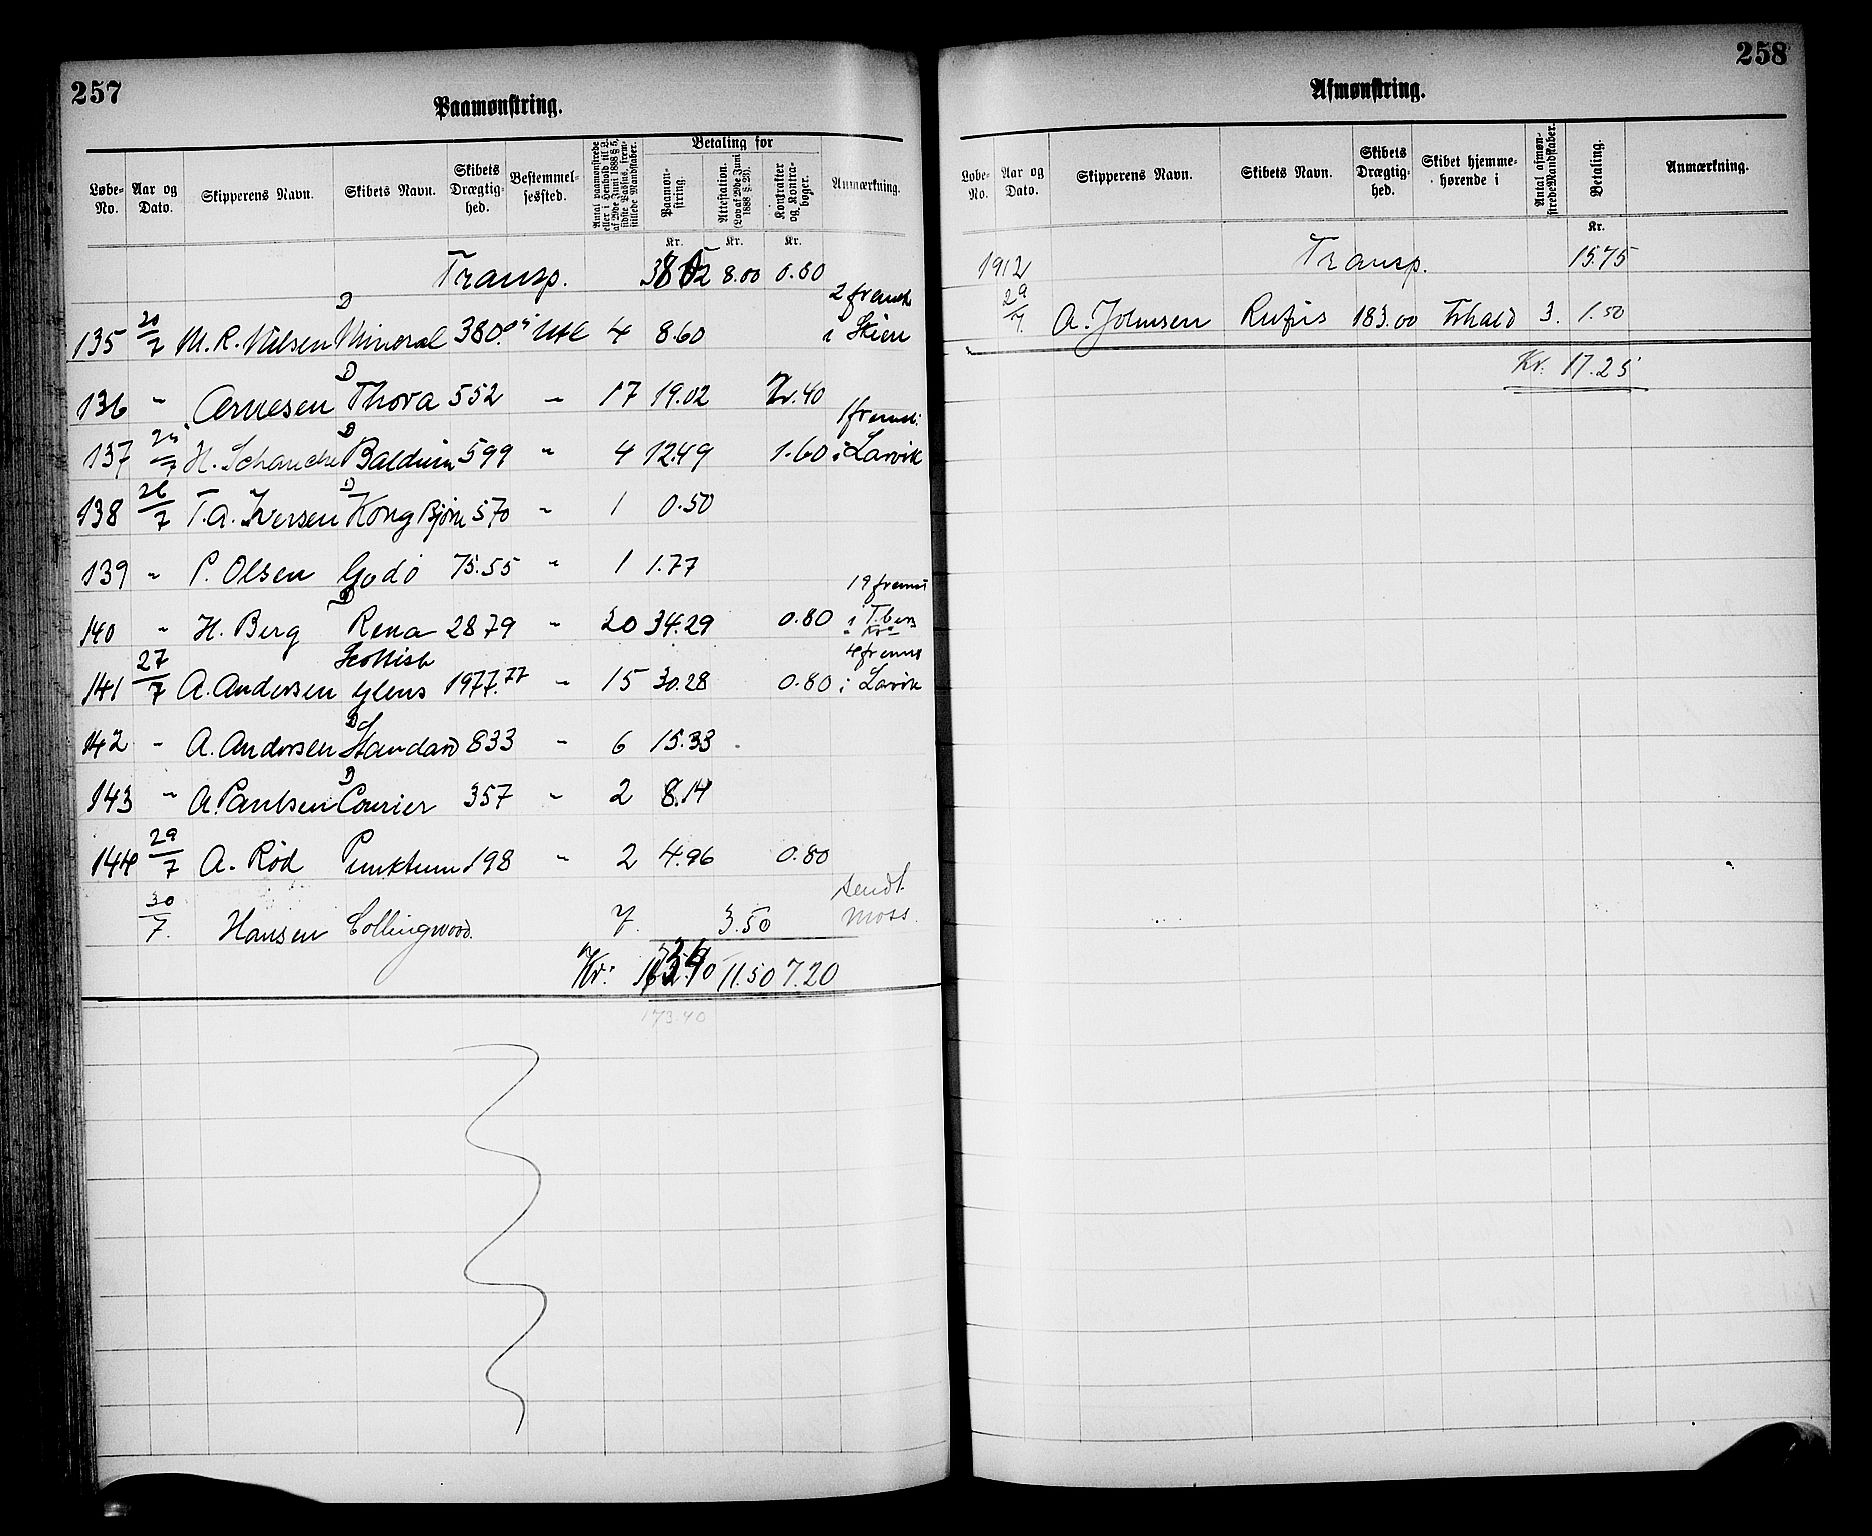 257
Paamønstring.
Løbe-No. Aar og Dato. Skipperens Navn. Skibets Navn. Skibets Drægtighed. Bestemmelsessted. Antal paamønstrede eller i Henhold til L. af 29de Juni 1888 § 5, sidste Passus, fremstillede Mandskaber. Betaling for Paamønstring. Attestation. (Lov af 29de Juni 1888 § 25). Kontrakter og Kontrabøger. Anmærkning.
Kr. Kr. Kr.
Transp. 8.00 0.80
135 7 M. R. Nilsen D Mineral 380 Utl 4 8.60 2 fremst i Skien
136 " Arnesen D Thora 552 " 17 19.02 2.40
137 7 H. Schanche D Baldwin 599 " 4 12.49 1.60 1 fremst: i Larvik
138 26/7 T. A. Iversen D Kong Bjørn 570 " 1 0.50
139 " P. Olsen Godø 75.55 " 1 1.77
140 " H. Berg D Rena 2879 " 20 34.29 0.80 19 fremst i T.berg
141 27/7 A. Andersen Scottish glens 1977.77 " 15 30.28 0.80 4 fremst i Larvik
142 " A. Andersen D Standard 833 " 6 15.33
143 " A. Paulsen D Courier 357 " 2 8.14
144 29/7 A. Rød Punktum 198 " 2 4.96 0.80
30/7. Hansen Collingwood. 7. 3.50 sendt Moss.
Kr: 11.50 7.20
173.40
258
Afmønstring.
Løbe-No. Aar og Dato. Skipperens Navn. Skibets Navn. Skibets Drægtighed. Skibet hjemmehørende i Antal afmønstrede Mandskaber. Betaling. Anmærkning.
Kr.
1912 Transp. 15.75
29/7. A. Johnsen Rufus 183.00 Frhald 3. 1.50
Kr. 17.25